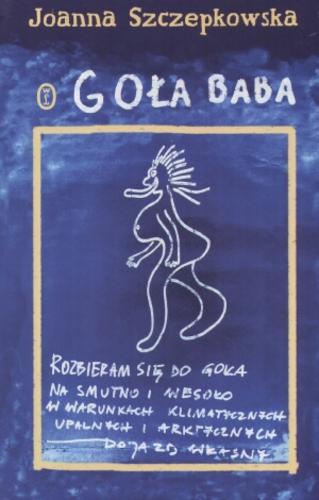 Joanna Szczepkowska
GOŁA BABA
ROZBIERAM SIĘ DO GOŁA
NA SMUTNO I WESOŁO
W WARUNKACH KLIMATYCZNYCH
UPALNYCH I ARKTYCZNYCH
DOJAZD WŁASNY